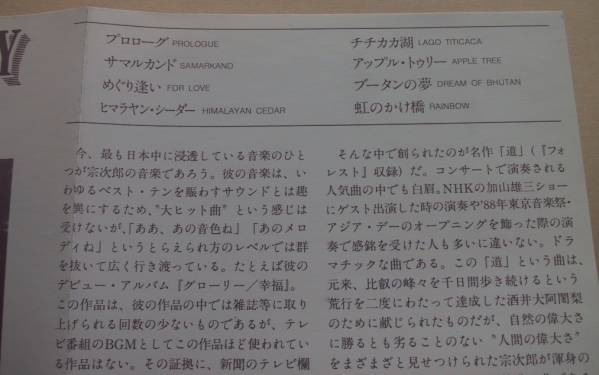 Y
プロローグ PROLOGUE
サマルカンド SAMARKAND
めぐり逢い FOR LOVE
ヒマラヤン・シーダー HIMALAYAN CEDAR
チチカカ湖 LAGO TITICACA
アップル・トゥリー APPLE TREE
ブータンの夢 DREAM OF BHUTAN
虹のかけ橋 RAINBOW
今、最も日本中に浸透している音楽のひと
つが宗次郎の音楽であろう。彼の音楽は、い
わゆるベスト・テンを賑わすサウンドとは趣
を異にするため、"大ヒット曲"という感じは
受けないが、「ああ、あの音色ね」「あのメロ
ディね」というとらえられ方のレベルでは群
を抜いて広く行き渡っている。たとえば彼の
デビュー・アルバム『グローリー／幸福』。
この作品は、彼の作品の中では雑誌等に取り
上げられる回数の少ないものであるが、テレ
ビ番組のBGMとしてこの作品ほど使われてい
る作品はない。その証拠に、新聞のテレビ欄
そんな中で創られたのが名作「道」(『フォ
レスト』収録)だ。コンサートで演奏される
人気曲の中でも白眉。NHKの加山雄三ショー
にゲスト出演した時の演奏や'88年東京音楽祭・
アジア・デーのオープニングを飾った際の演
奏で感銘を受けた人も多いに違いない。ドラ
マチックな曲である。この「道」という曲は、
元来、比叡の峰々を千日間歩き続けるという
荒行を二度にわたって達成した酒井大阿闍梨
のために献じられたものだが、自然の偉大さ
に勝るとも劣ることのない"人間の偉大さ"
をまざまざと見せつけられた宗次郎が渾身の